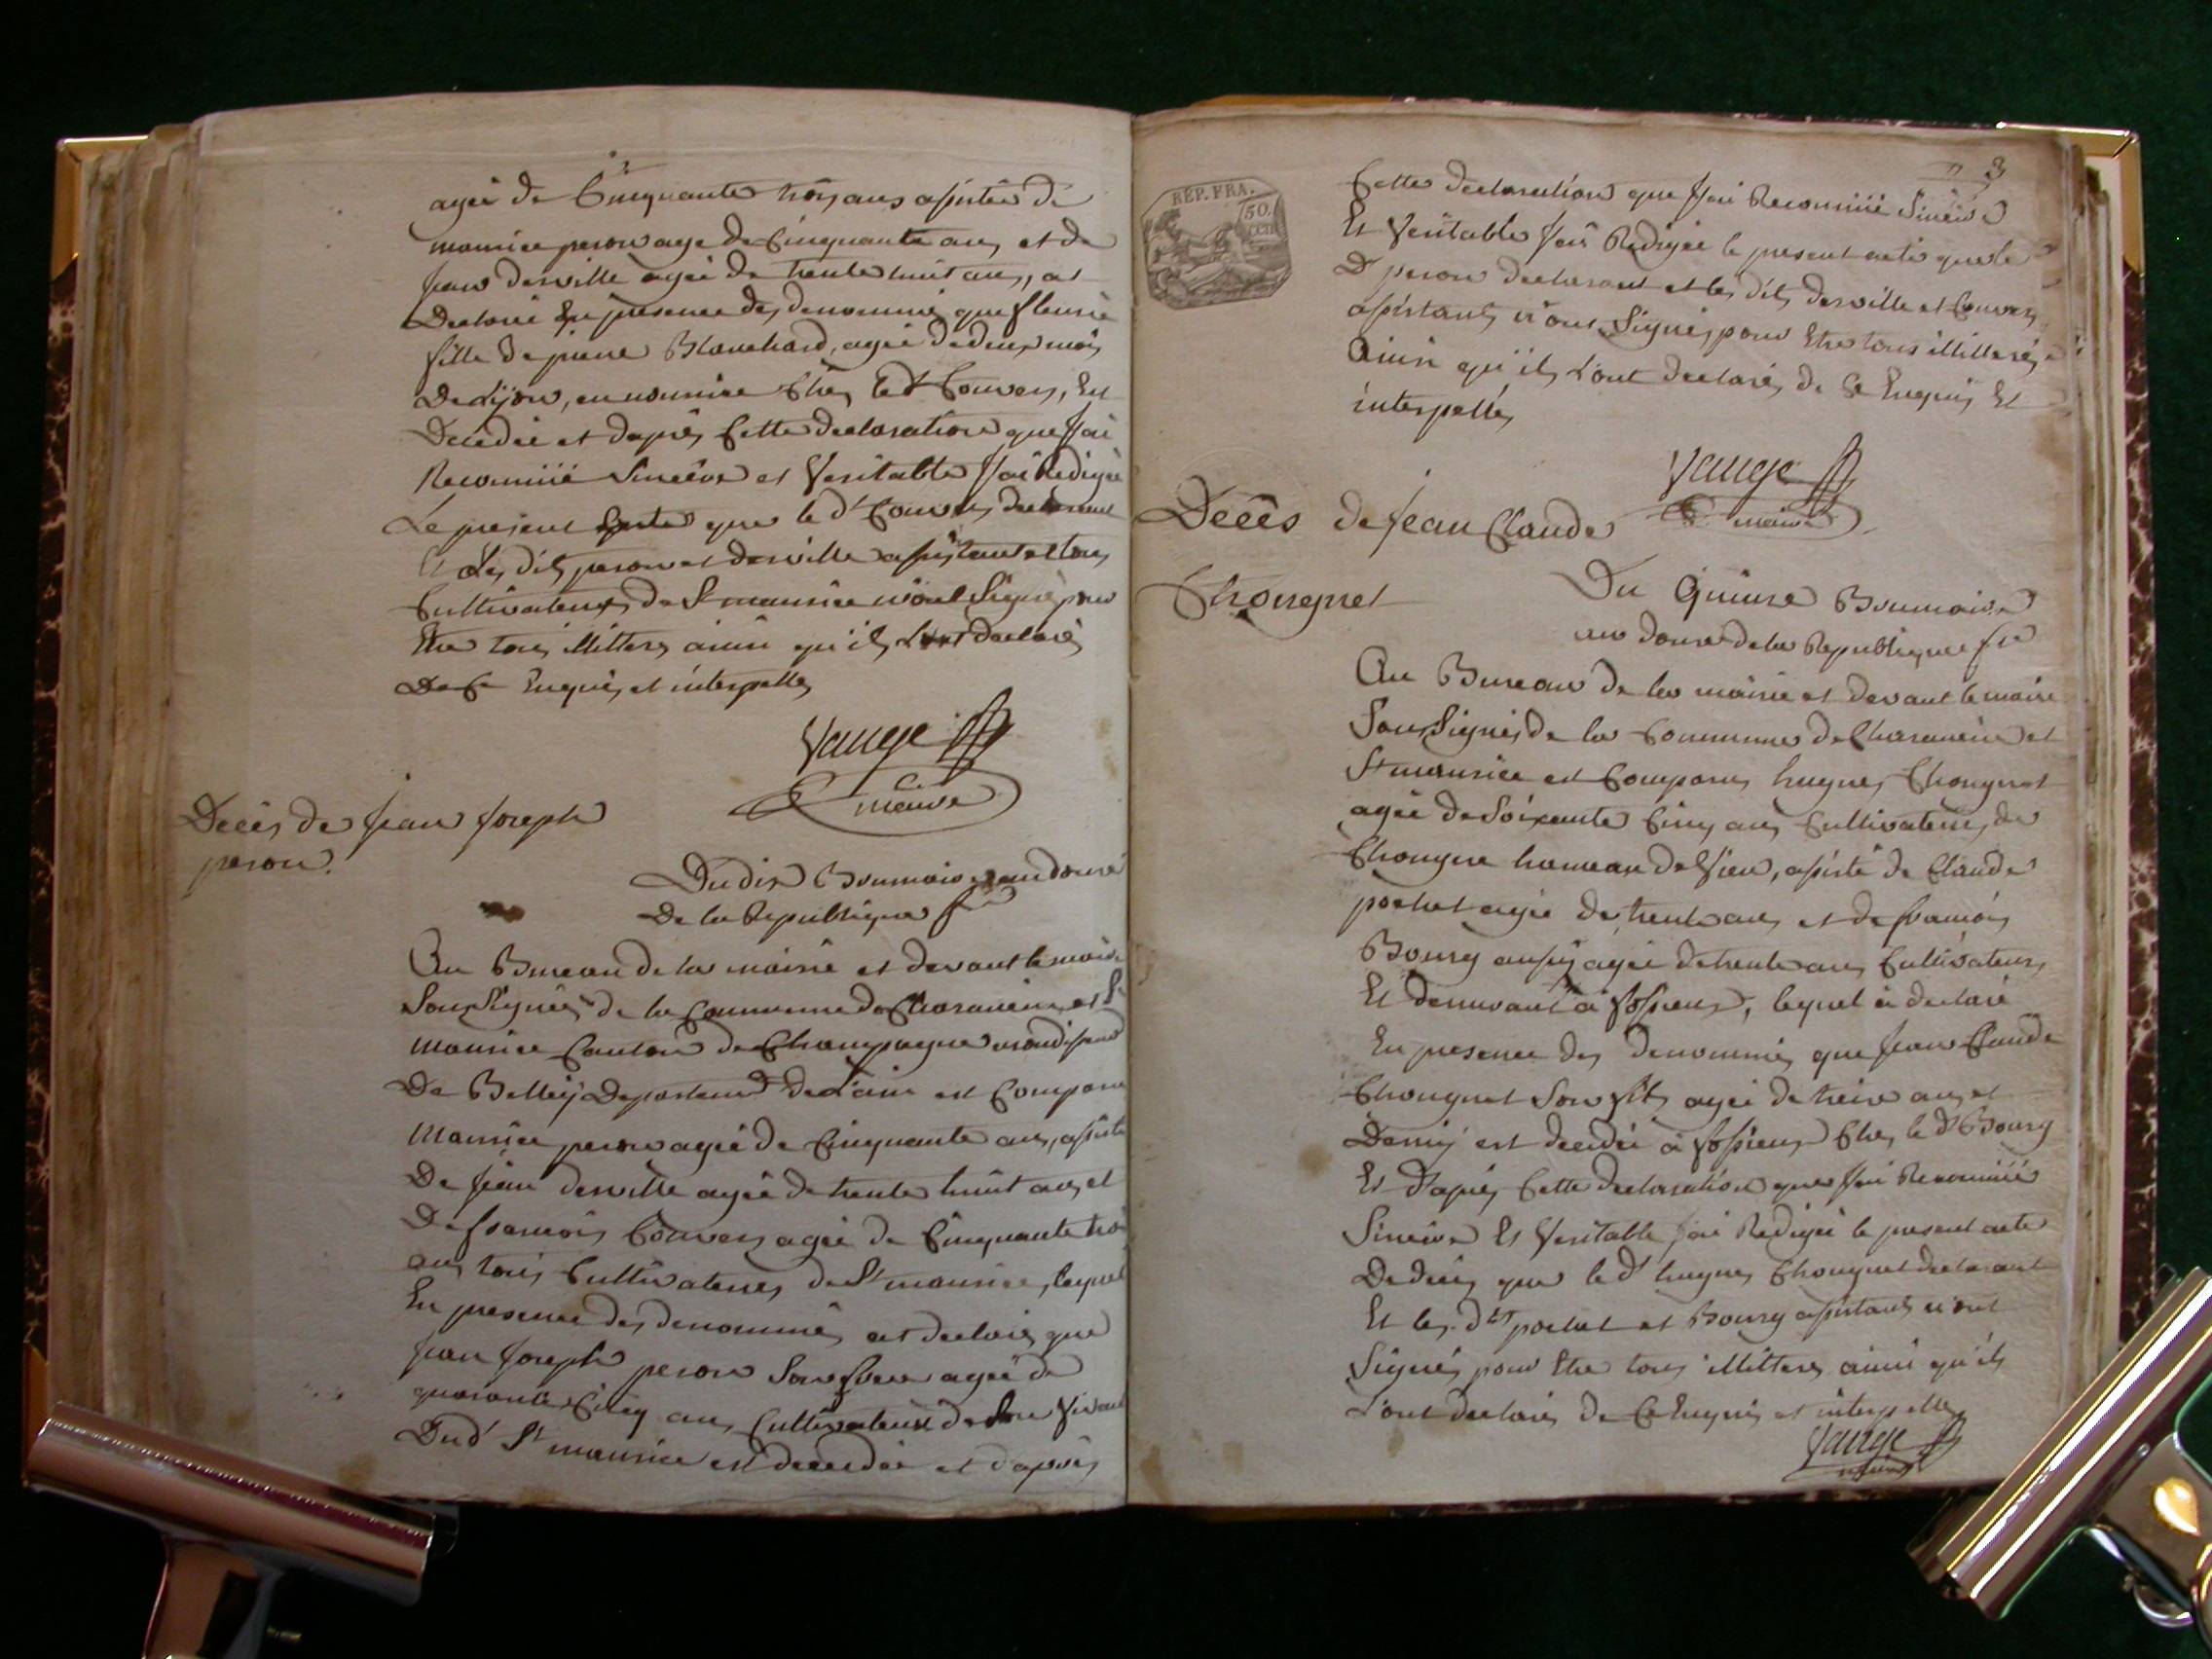 agée de Cinquante trois ans assistée de
maurice peron age de Cinquante ans et de
jean derville agée de trente huit ans, at
Declaré En presence des denommés que fleurie
fille de pierre Blanchard, agée de deux mois
De Lÿon, en nourrice Chés le dt Convers, Est
Decedée et dapres Cette declaration que J'ai
Reconnüe Sincère et Veritable J'ai Redigée
Le present acte que le dt Convers declarant
Et Les dits peron et derville assistants et tous
Cultivateurs de St maurice n'ont Signé pour
Etre tous illitteres ainsi qu'ils L'ont declarés
De Ce Enquis et interpellés
Vauge
maire
Decès de jean joseph
peron.
Du dix Brumaire an douze
De la Republique fse
Au Bureau de la mairie et devant le maire
Sousignée de la Commune de Charancin et St
maurice Canton de Champagne arondissent
De Belleÿ Departemt de L'ain est Comparu
Maurice peron agée de Cinquante ans, assisté
De jean derville agée de trente huit ans et
De francois Convers agée de Cinquante trois
ans tous Cultivateurs de St maurice, lequel
En presence des denommés at declaré que
jean joseph peron Son frere agée de
quarante Cinq ans Cultivateur de Son Vivant
Dud St maurice est decedée et d'apres
3
REP. FRA.
50.
CEN
Cette declaration que J'ai Reconnüe Sincère
Et Veritable J'ai Redigée le present acte que le
D peron declarant et les dits derville et Convers
assistants n'ont Signés pour Etre tous illitterés
Ainsi qu'ils L'ont declarés de Ce Enquis Et
interpellés
Vauge
maire
Decès de jean Claude
Chougnet
Du Quinze Brumaire
an douze de la Republique fse
Au Bureau de la mairie et devant le maire
Sousignés de la Commune de Charancin et
St maurice est Comparus hugues Chougnet
agée de Soixante Cinq ans Cultivateur, de
Chougne hameau de , assisté de Claude
pochet agée de trente ans et de francois
Bourg aussÿ agée de trente ans Cultivateurs
Et demeurant à fossieux, lequel à declaré
En presence des denommés que jean Claude
Chougnet Son fils agée de treize ans et
Demÿ est decedée à fossieux Chés le dt Bourg
Et D'apres Cette declaration que J'ai Reconnüe
Sincère Et Veritable J'ai Redigée le present acte
De decès que le dt hugues Chougnet declarant
Et les dts pochet et Bourg assistants n'ont
Signés pour Etre tous illitteres ainsi qu'ils
L'ont declarés de Ce Enquis et interpellés
Vauge
maire